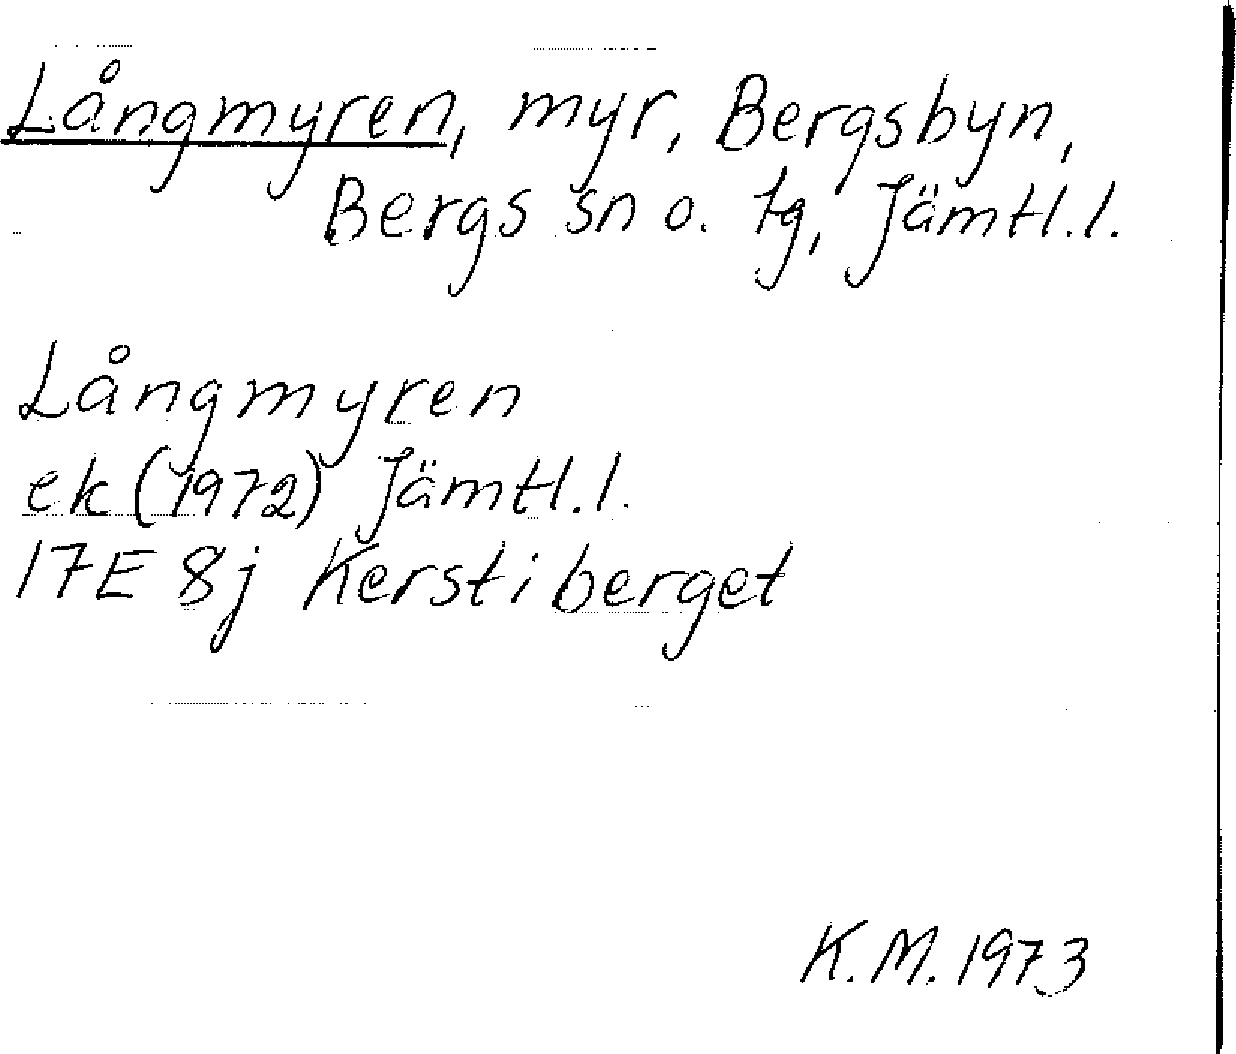 Långmyren, myr, Bergsbyn,
Bergs sn o. tg, Jämtl.l.
Långmyren
ek (1972) Jämtl.l.
17E 8j Kerstiberget
K.M. 1973